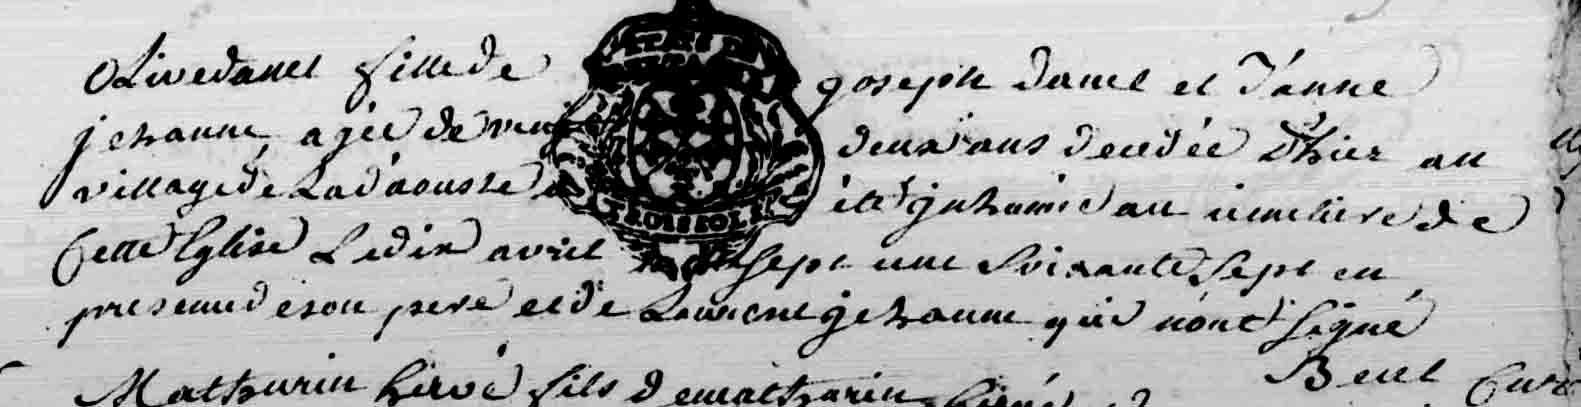 Olive danet fille de joseph danet et Jánne
jehanne, agée de vingt deux ans decedée d'hier au
village de Ladáousse a été inhumée au cimetiere de
Cette Eglise Le dix avril mil sept cent soixante sept en
presence de son pere et de Laurent jehanne qui nónt signé
Mathurin hervé fils de mathurin hervé Curé